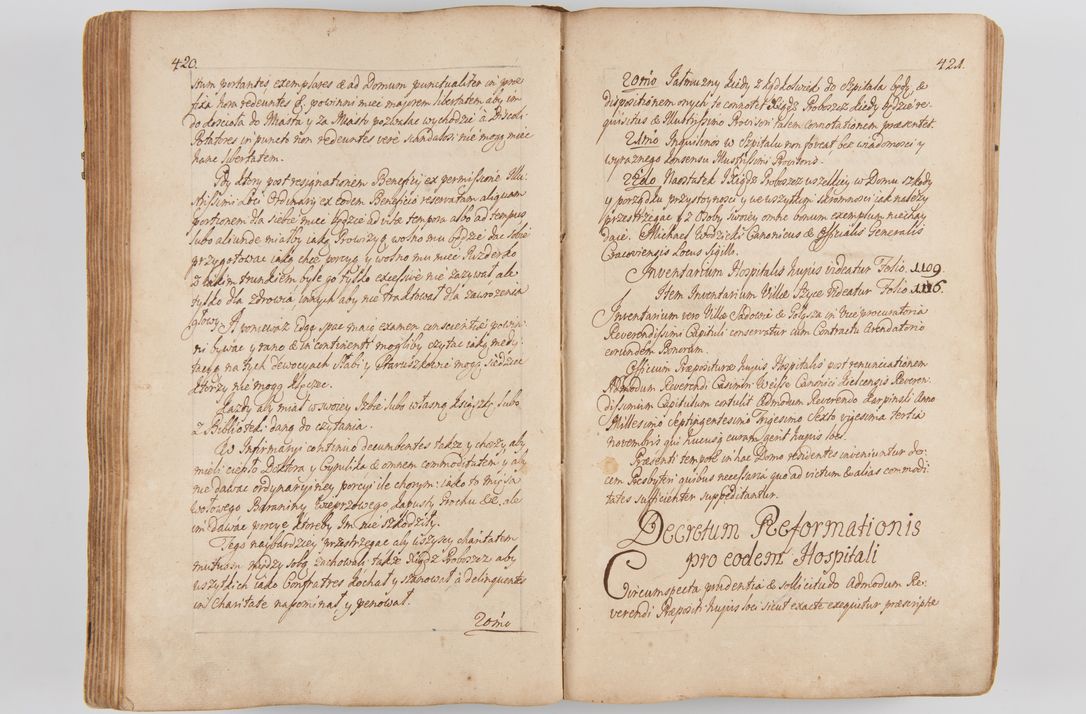 420.
stum portantes exemplares & ad Domum punctualiter in prae
fixa hora redeuntes &. powinni miec majorem libertatem aby im
do doscioła do Miasta y za Miasto pozwalac wychodzić à
Potatores in puncto non redeuntes vere scandalosi nie mogą miec
hanc libertatem.
Gdy ktory post resignationem Beneficij ex permissione Illu-
strissimi Loci Ordinarij ex eodem Beneficio reservatam aliquam
portionem dla siebie miec będzie ad vitae tempora albo ad tempus
lubo aliunde miałby iaką Prowizyą, wolno mu będzie dac sobie
przygotowac iako chce porcyą y wolno mu miec Puzderko
z iakim trunkiem byle go tylko excessive nie zazywał ale
tylko dla zdrowia innych aby nie traktował dla zawrozenia
głowy
A poniewaz Xdzę spac maią examen conscientiae powin-
ni bywac y rano & in continenti mogliby czytac iaką medy-
tacyą na tych dewocyach słabi y staruszkowie mogą siedziec
ktorzy nie mogą klęczec.
Kazdy aby miał w swoiey Izbie lubo własną Ksiązkę lubo
z Biblioteki daną do czytania.
W Infirmaryi continuo decumbentes takze y chorzy aby
mieli ciepło Doktora y Cyrulika & omnem commoditatem y aby
nie dawac ordynaryiney porcyi ile chorym: iako to mięsa
wołowego Baraniny Wieprzowego Kapusty Grochu &c. ale
im dawac porcye ktoreby Im nie szkodziły.
Tego naybardziey przestrzegac aby wszyscy charitatem
mutuam między sobą zachowali także Xiądz Proboszcz aby
wszytkich iako Confratres kochał y szanował à delinquentes
in Charitate napominał y penował.
20mo
421.
20mo Jałmuzny kiedy z kądkolwiek do Szpitala będą &
dispositionem onych te connotet Xiądz Proboszcz kiedy będzie re-
quisitus & Illustrissimo Provisori talem connotationem praesentet.
21mo Inquilinos w Szpitalu non foveat bez wiadomosci y
wyraznego konsensu Illustrissimi Provisoris.
22do Naostatek Xiądz Proboszcz wszelkiey w Domu szkody
y porządku przystoynosci y we wszytkim skromnosci iak nalezy
przestrzegac y z Osoby swoiey omne bonum exemplum niechay
daie. Michael Wodzicki Canonicus & Officialis Generalis
Cracoviensis Locus Sigilli.
Inventarium Hospitalis hujus videatur Folio. 1109.
Item Inventarium Villae Szyce videatur Folio 1116.
Inventarium vero Villae &
Reverendissimi Capituli conservatur cum Contractu Arendatorio
eorundem Bonorum.
Officium Praepositurae hujus Hospitalis post renunciationem
Admodum Reverendi Casimiri Weisse Canonici Kielcensis Reveren-
dissimum Capitulum contulit Admodum Reverendo Karpinski Anno
Millesimo Septingentesimo Trigesimo Sexto vigesima tertia
novembris qui hucusq curam gerit hujus loci.
Praesenti tempore in hac Domo residentes inveniuntur de-
cem Presbyteri quibus necessaria quo ad victum & alias commodi-
tates sufficienter suppeditantur.
Decretum Reformationis
pro eodem Hospitali
Circumspecta prudentia & sollicitudo Admodum Re-
verendi Praepositi hujus loci sicut exacte exequitur praescripta